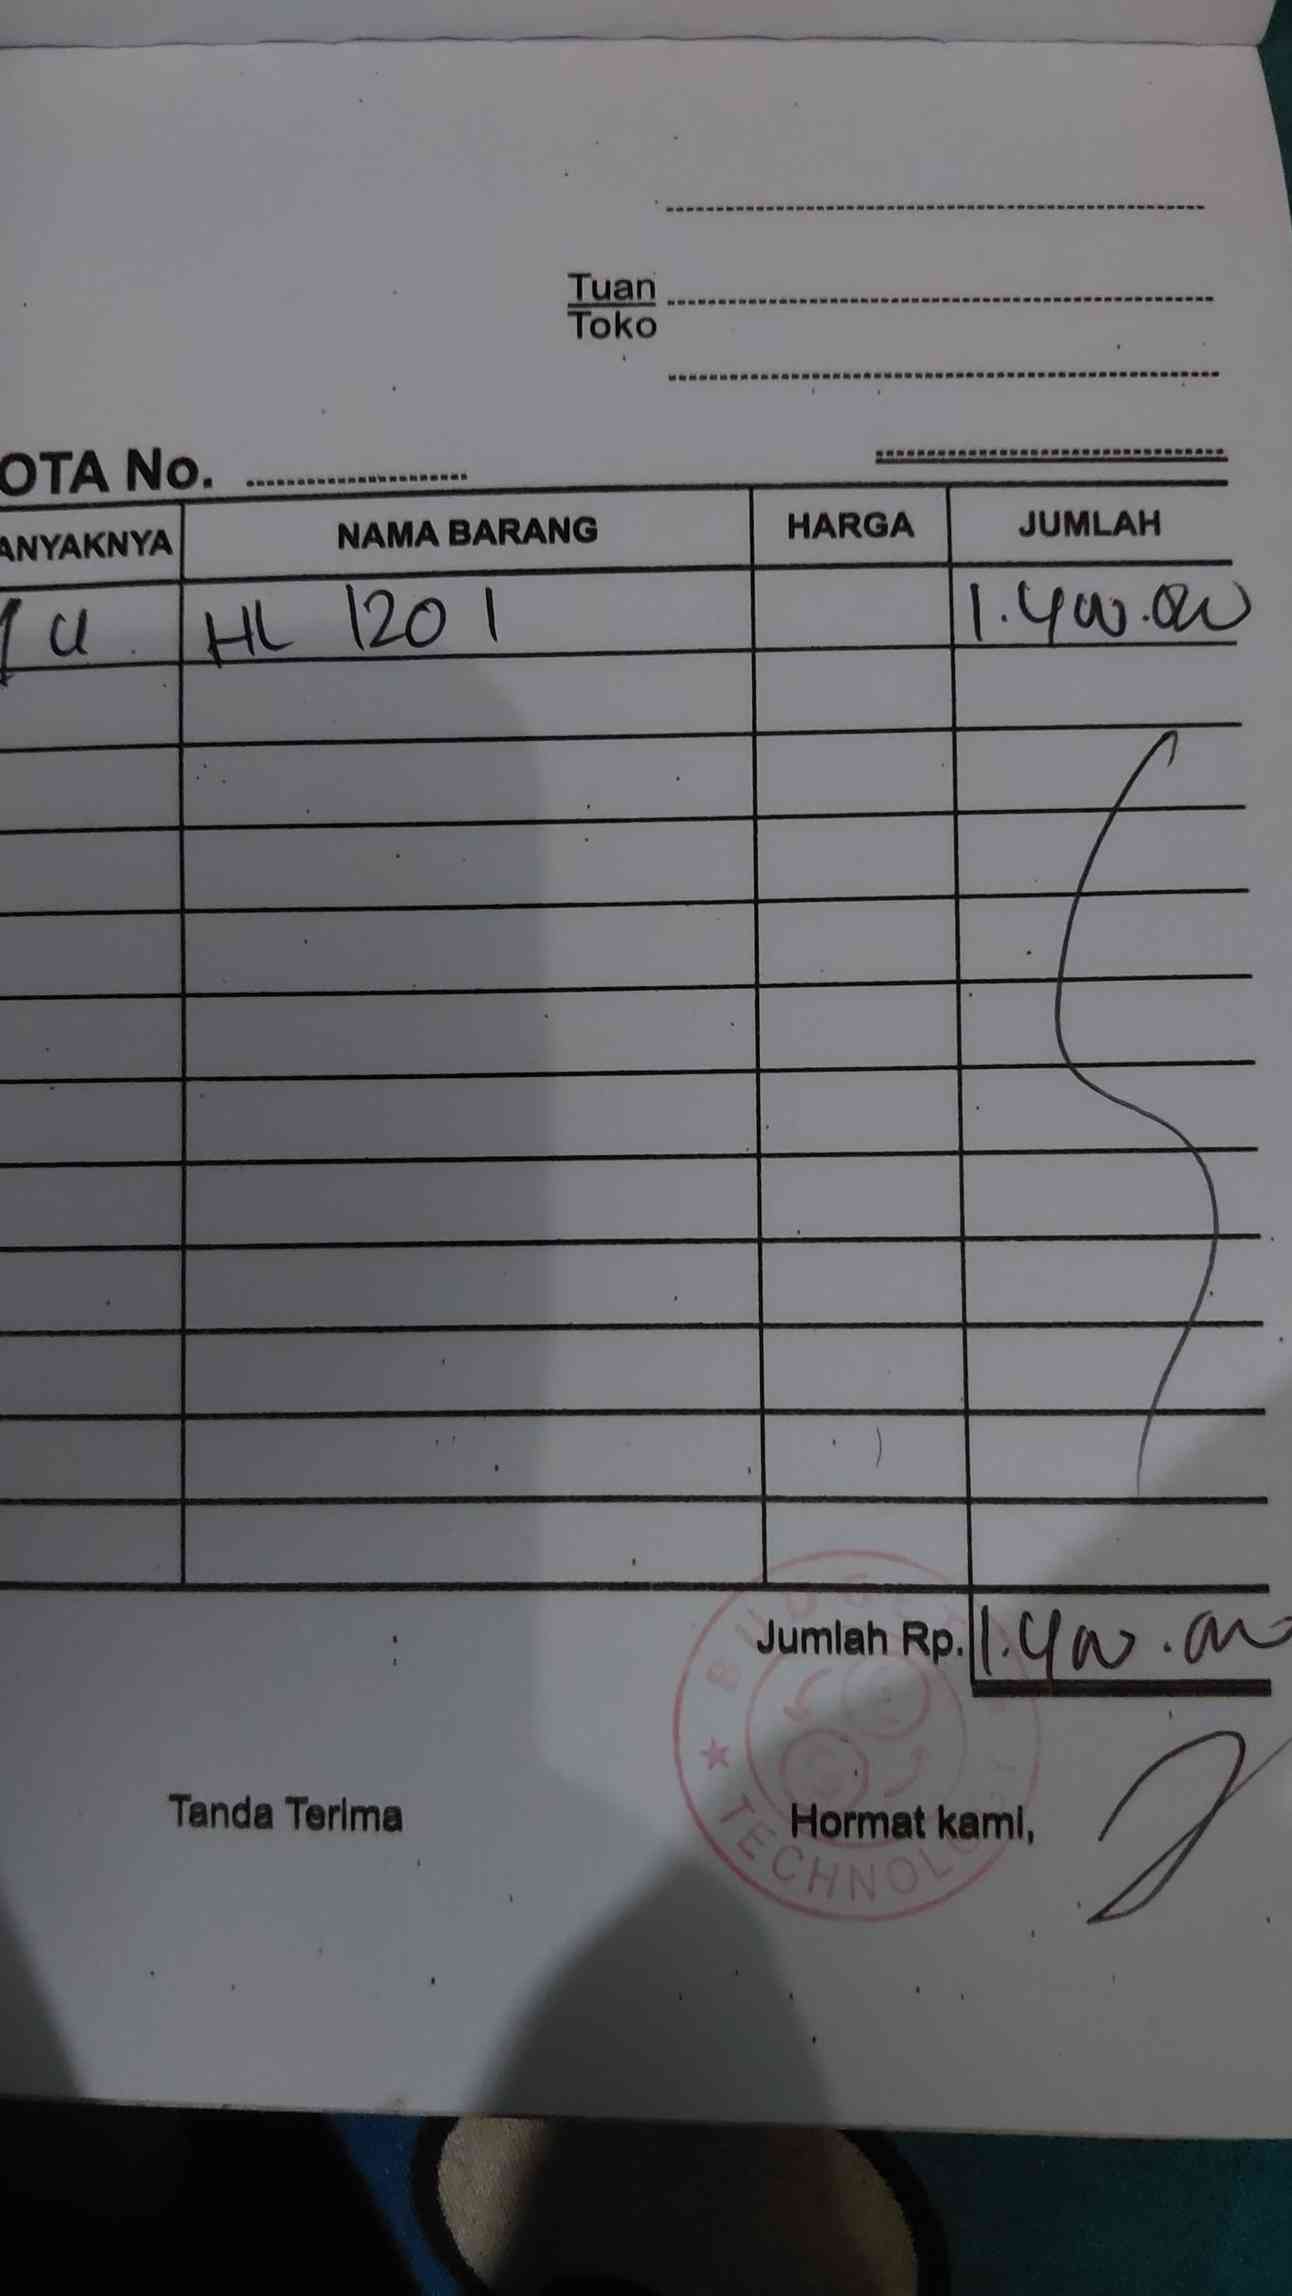 Tuan
Toko
OTA No.
ANYAKNYA NAMA BARANG HARGA JUMLAH
1 U HL 1201 1.400.000
Jumlah Rp. 1.400.000
Tanda Terima Hormat kami,
BUDGET
TECHNOLOGY